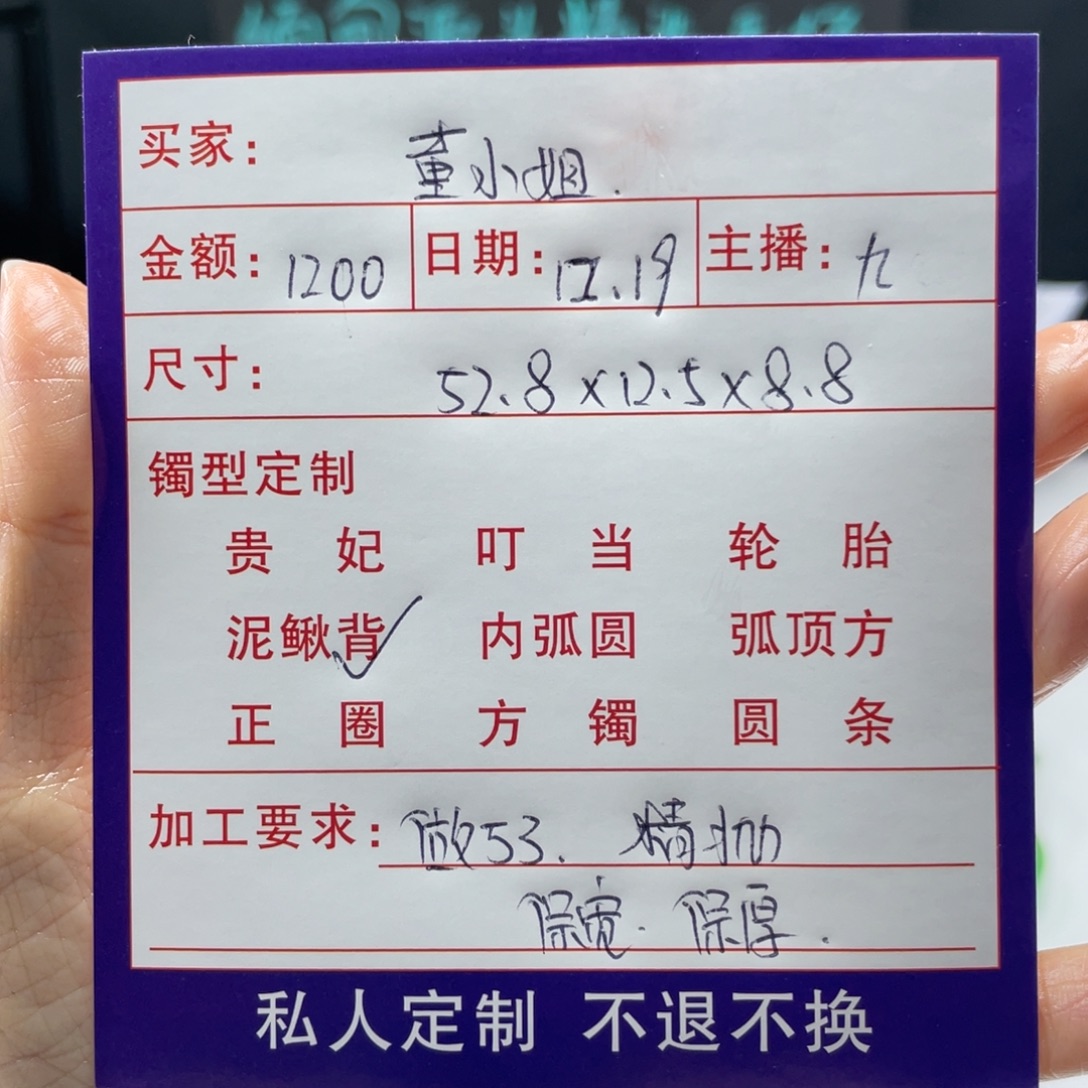 买家: 董小姐.
金额: 1200 日期: 12.19 主播: 九
尺寸: 52.8×12.5×8.8
镯型定制
贵妃 叮当 轮胎
泥鳅背✓ 内弧圆 弧顶方
正圈 方镯 圆条
加工要求: 做53. 精抛
保宽. 保厚.
私人定制 不退不换